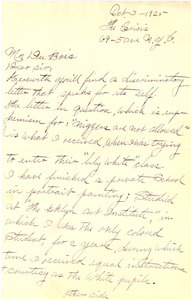 Oct - 3 - 1925
The Crisis
69 - 5th Ave N.Y.C.
Mr Du Bois
Dear Sir,
Herewith you'll find a discriminatory
letter that speaks for its self.
The letter in question, which is euph-
humism for: "Niggers are not allowed"
is what I received, when I was trying
to enter their "lily white" class.
I have finished a private School
in portrait painting; Studied
at "The Brooklyn Art Institute" in
which I was the only colored
Student for a year, during which
time I received equal instructions
& courtesy as the White pupils.
Other side